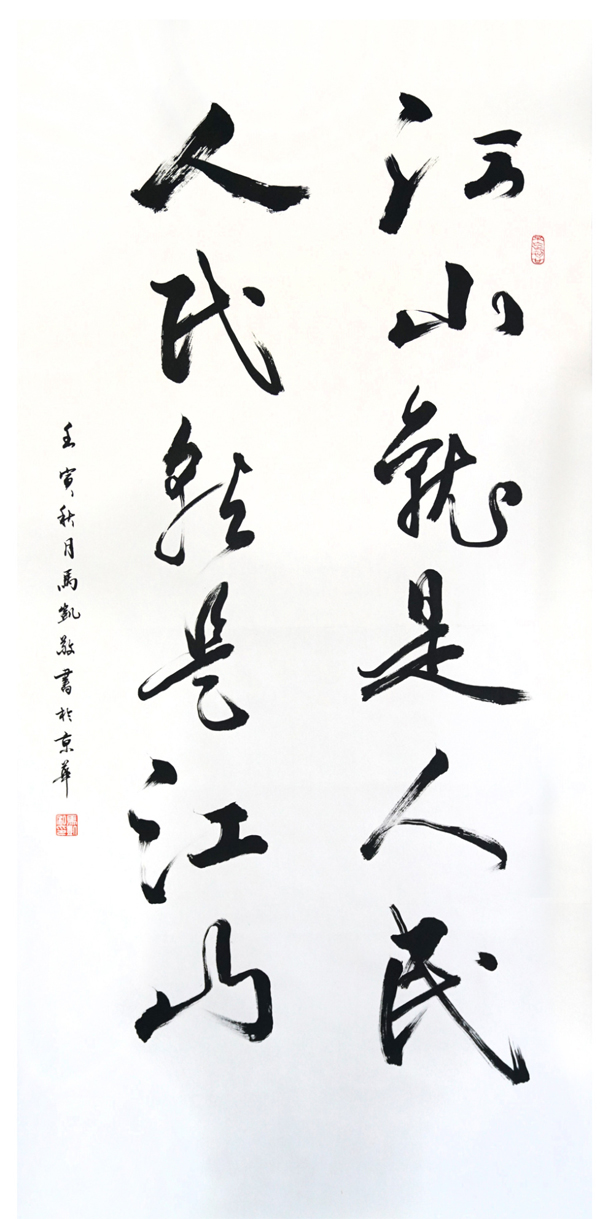 江山就是人民
人民就是江山
壬寅秋月馬凱敬書於京華